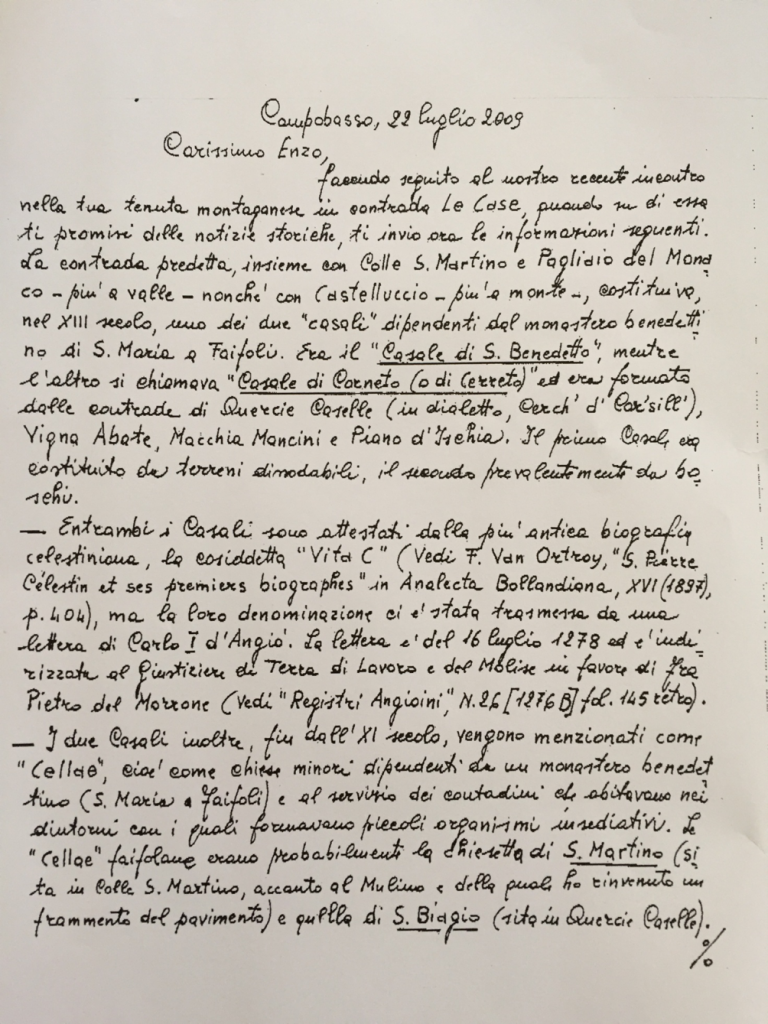 Campobasso, 22 luglio 2009
Carissimo Enzo,
facendo seguito al nostro recente incontro
nella tua tenuta montaganese in contrada Le Case, quando su di essa
ti promisi delle notizie storiche, ti invio ora le informazioni seguenti.
La contrada predetta, insieme con Colle S. Martino e Pagliaio del Mona
co - piu' a valle - nonche' con Castelluccio - piu' a monte -, costituiva,
nel XIII secolo, uno dei due "casali" dipendenti dal monastero benedetti
no di S. Maria a Faifoli. Era il "Casale di S. Benedetto", mentre
l'altro si chiamava "Casale di Corneto (o di Cerreto)" ed era formato
dalle contrade di Quercie Caselle (in dialetto, Cerch' d' Car'sill'),
Vigna Abate, Macchia Mancini e Piano d'Ischia. Il primo Casale era
costituito da terreni dissodabili, il secondo prevalentemente da bo=
schi.
— Entrambi i Casali sono attestati dalla piu' antica biografia
celestiniana, la cosiddetta "Vita C" (Vedi F. Van Ortroy, "S. Pierre
Célestin et ses premiers biographes" in Analecta Bollandiana, XVI (1897),
p. 404), ma la loro denominazione ci e' stata trasmessa da una
lettera di Carlo I d'Angio'. La lettera e' del 16 luglio 1278 ed e' indi=
rizzata al Giustiziere di Terra di Lavoro e del Molise in favore di Fra
Pietro del Morrone (Vedi "Registri Angioini", N. 26 [1276 B] fol. 145 retro).
— I due Casali inoltre, fin dall'XI secolo, vengono menzionati come
"Cellae", cioe' come chiese minori dipendenti da un monastero benedet
tino (S. Maria a Faifoli) e al servizio dei contadini che abitavano nei
dintorni con i quali formavano piccoli organismi insediativi. Le
"Cellae" faifolane erano probabilmente la chiesetta di S. Martino (si
ta in Colle S. Martino, accanto al Mulino e della quale ho rinvenuto un
frammento del pavimento) e quella di S. Biagio (sita in Quercie Caselle).
%